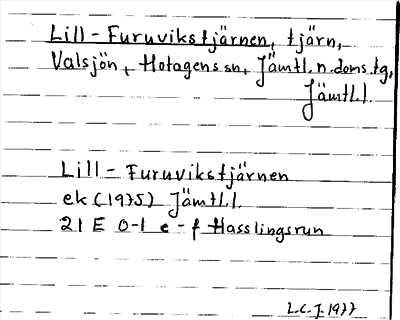 Lill-Furuvikstjärnen, tjärn,
Valsjön, Hotagens sn, Jämtl. n. doms. tg,
Jämtl. l.
Lill-Furuvikstjärnen
ek (1975) Jämtl. l.
21 E 0-1 e-f Hasslingsrun
L.C.J. 1977